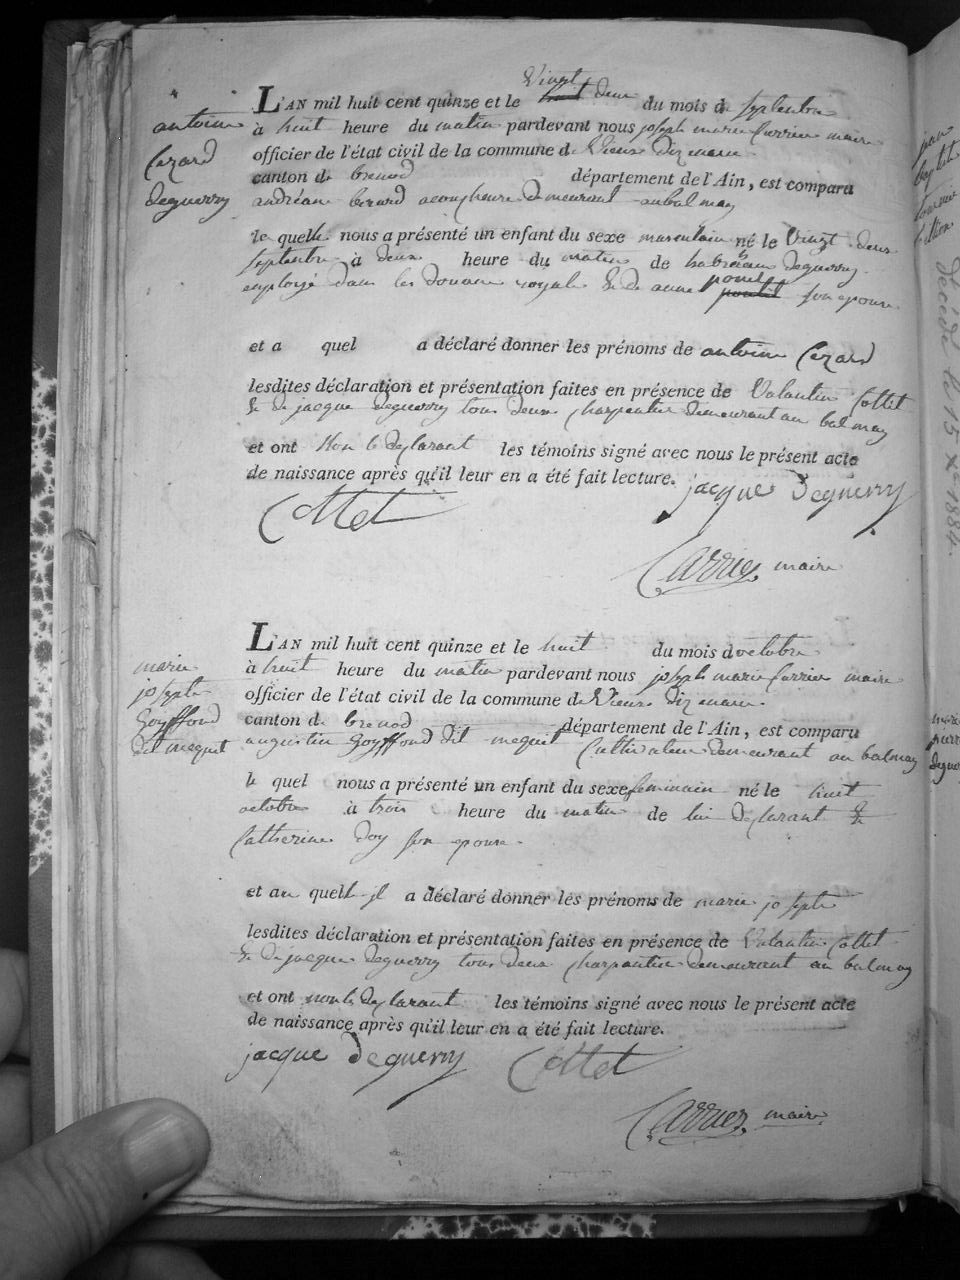 antoine
Cezard
deguerry
Vingt
L'AN mil huit cent quinze et le deux du mois de septembre
à huit heure du matin pardevant nous joseph marie Carrier maire
officier de l'état civil de la commune de Vieux dizenave
canton de brenod département de l'Ain, est comparu
andréane berard acoucheuse demeurant au balmay
le quelle nous a présenté un enfant du sexe masculain né le Vingt deux
septembre à deux heure du matin de deguerry
employé dans les douane royale & de anne poncet son epouse
et a quel a déclaré donner les prénoms de antoine Cezard
lesdites déclaration et présentation faites en présence de Valantin Collet
& de jacque deguerry tous deux charpentier demeurant au balmay
et ont Non le deglarant les témoins signé avec nous le présent acte
de naissance après qu'il leur en a été fait lecture.
jacque deguerry
Collet
Carrier maire
marie
joseph
Goyffond
dit mequet
L'AN mil huit cent quinze et le huit du mois d octobre
à huit heure du matin pardevant nous joseph marie Carrier maire
officier de l'état civil de la commune de Vieux dizenave
canton de brenod département de l'Ain, est comparu
augustin Goyffond dit mequet Cultivateur demeurant au balmay
le quel nous a présenté un enfant du sexe feminain né le huit
octobre à trois heure du matin de lui deglarant &
Catherine doy son epouse
et au quell il a déclaré donner les prénoms de marie joseph
lesdites déclaration et présentation faites en présence de Valantin Collet
& de jacque deguerry tous deux charpentier demeurant au balmay
et ont non le deglarant les témoins signé avec nous le présent acte
de naissance après qu'il leur en a été fait lecture.
jacque deguerry Collet
Carrier maire
Décédé le 15 Xbre 1884.